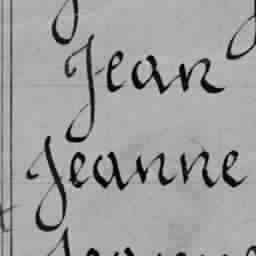 Jean
Jeanne